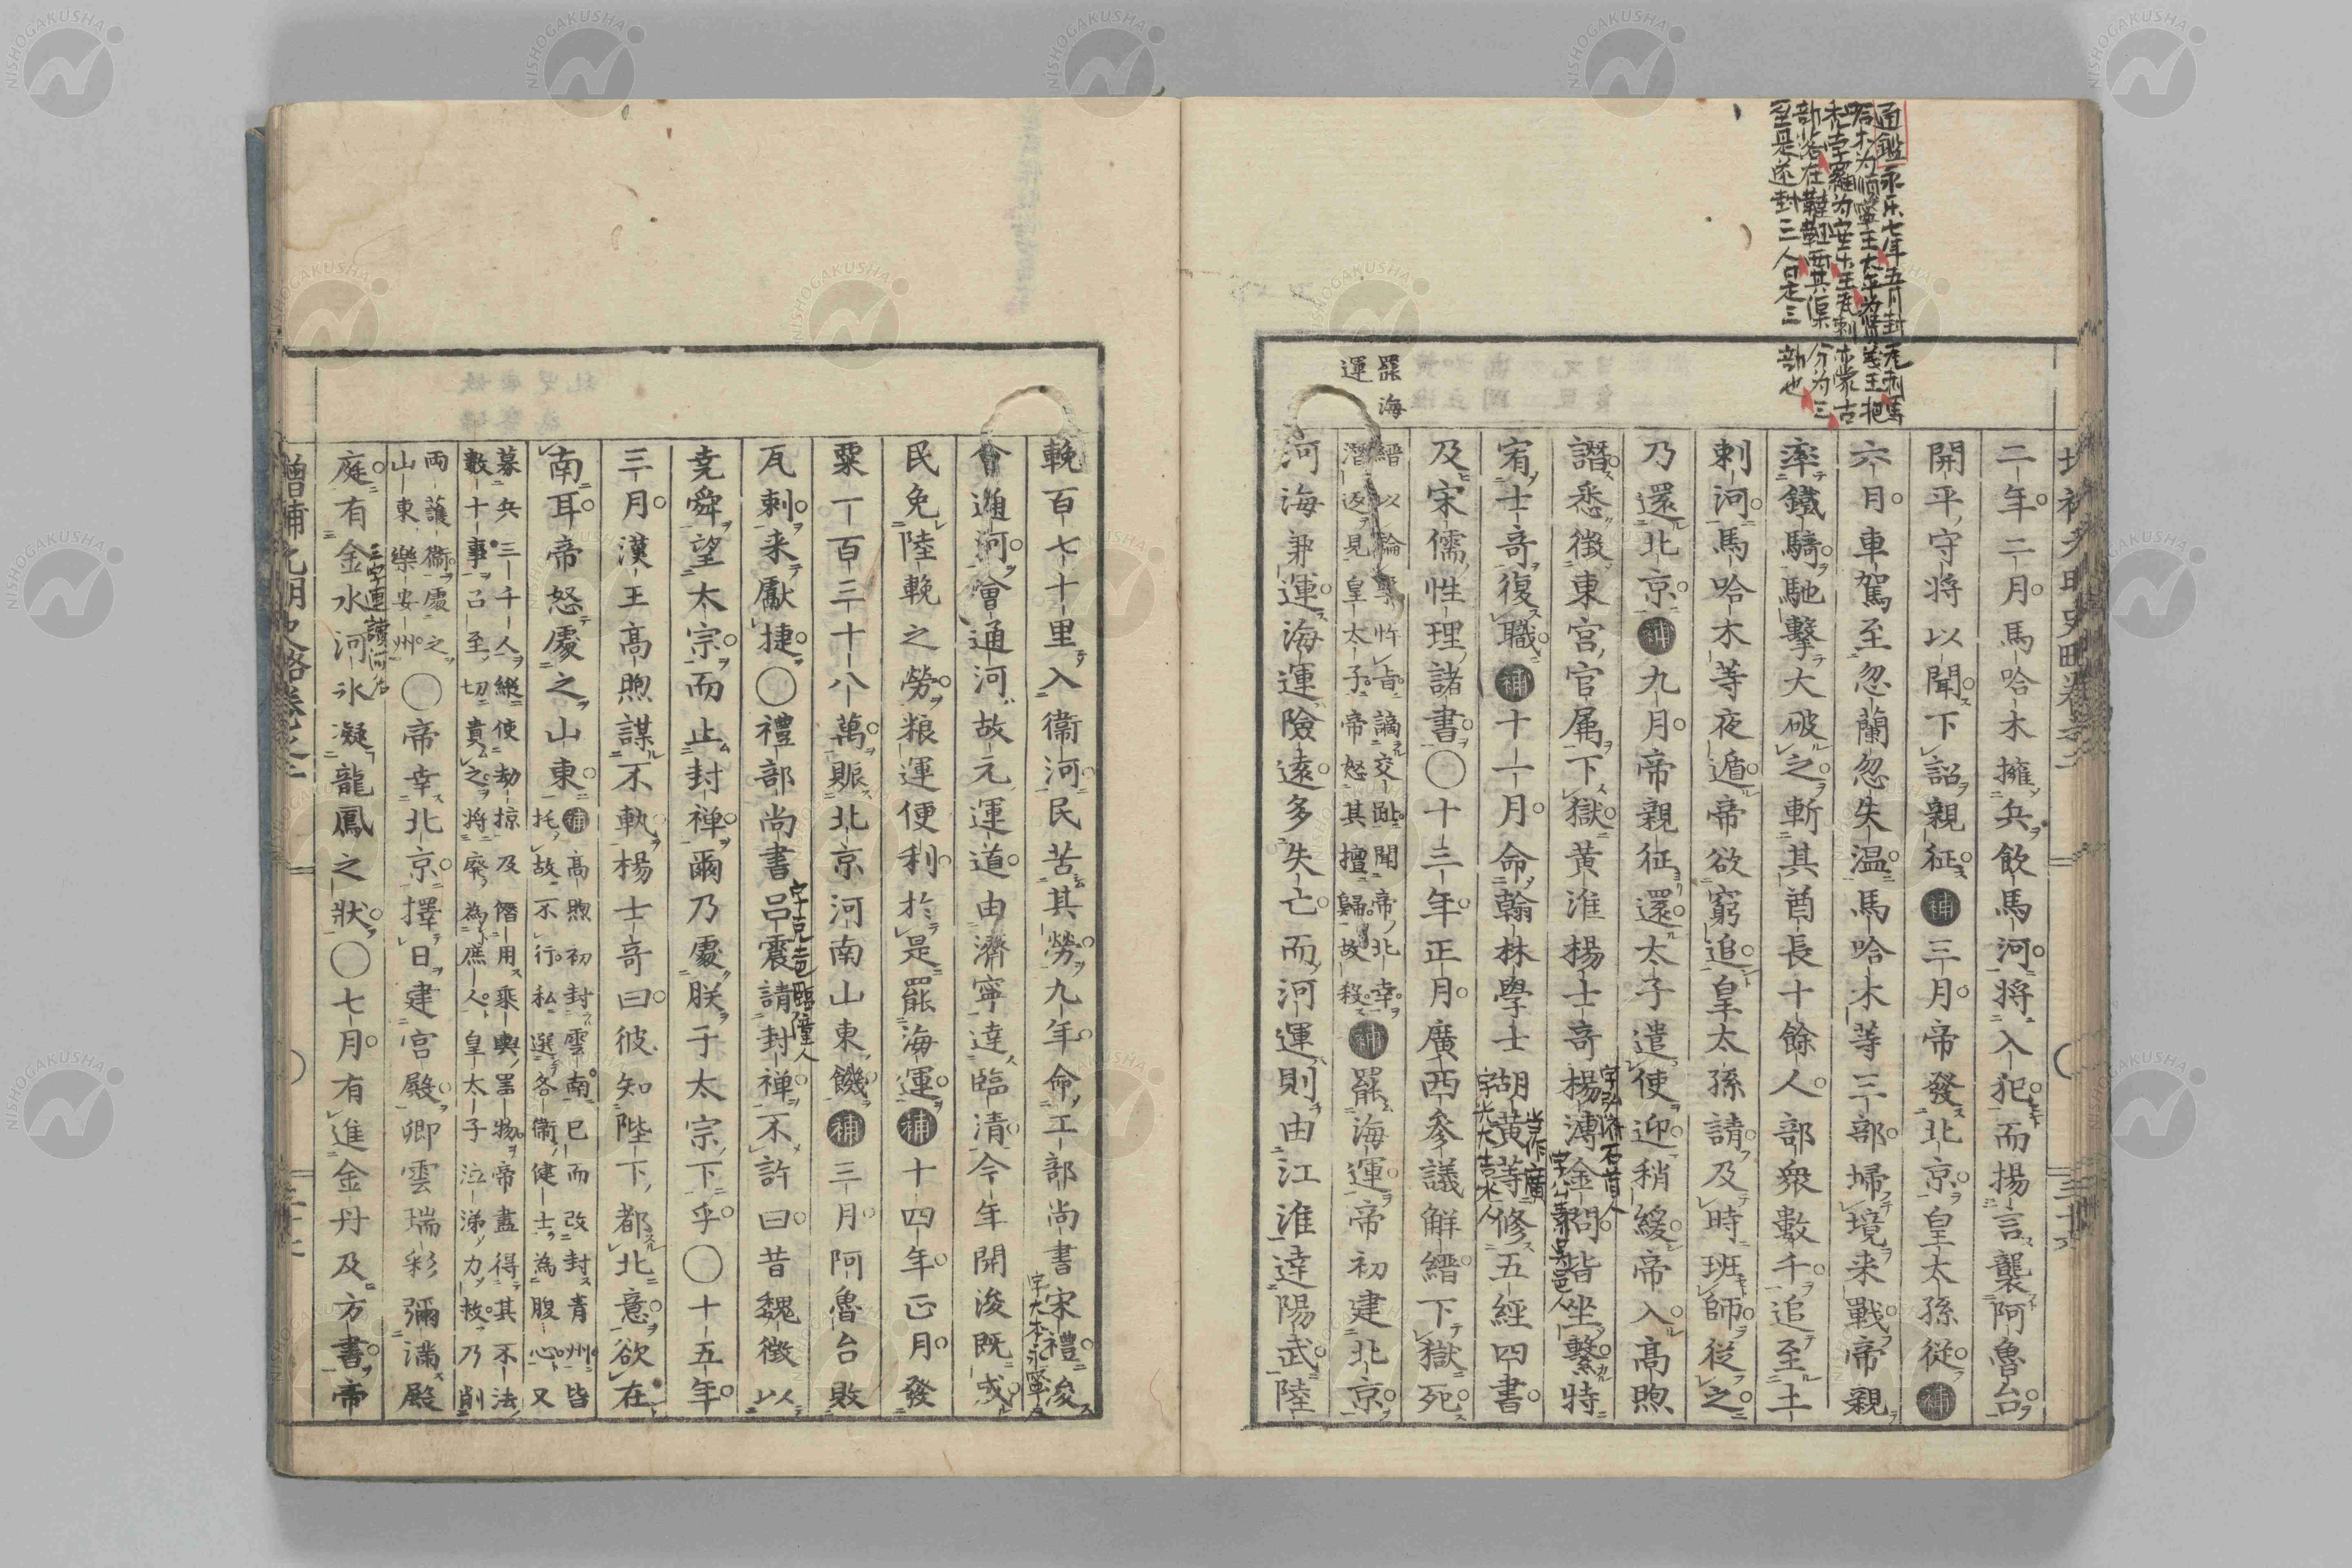 通鑑永乐七年五月封兀剌馬
哈木为順寧王太平为賢義王把
禿孛羅为安乐王瓦剌亦蒙古
部落在韃靼西其渠分为三
至是遂封三人曰走三部也
罷海
運
二年二月馬哈木擁兵飲馬河將入犯而揚言襲阿魯台
開平守将以聞下詔親征補三月帝發北京皇太孫從補
六月車駕至忽蘭忽失温馬哈木等三部埽境来戰帝親
率鐵騎馳擊大破之斬其酋長十餘人部衆數千追至土
剌河馬哈木等夜遁帝欲窮追皇太孫請及時班師從之
乃還北京補九月帝親征還太子遣使迎稍緩帝入高煦
譖悉徴東宮官属下獄黄淮楊士奇楊溥金問皆坐繫特
字弘济石首人
字公素吳邑人
宥士奇復職補十一月命翰林學士胡黄等修五經四書
当作廣
字光大吉水人
及宋儒性理諸書〇十三年正月廣西參議解縉下獄死
縉以輪擊忤旨謫交趾聞帝北幸
潜返見皇太子帝怒其擅歸故殺補罷海運帝初建北京
河海兼運海運險遠多失亡而河運則由江淮達陽武陸
輓百七十里入衞河民苦其勞九年命工部尚書宋禮浚
字大本永寧人
會通河會通河故元運道由濟寧達臨清今年開浚既成
民免陸輓之勞粮運便利於是罷海運補十四年正月發
粟一百三十八萬賑北京河南山東饑補三月阿魯台敗
瓦剌来獻捷〇禮部尚書呂震請封禅不許曰昔魏徴以
字克聲臨潼人
堯舜望太宗而止封禅爾乃處朕于太宗下乎〇十五年
三月漢王高煦謀不軌楊士奇曰彼知陛下都北意欲在
南耳帝怒處之山東補高煦初封雲南已而改封青州皆
托故不行私選各衞健士為腹心又
募兵三千人縱使劫掠及僭用乘輿噐物帝盡得其不法
數十事召至切責之将廢為庶人皇太子泣涕力救乃削
両護衞處之
山東樂安州〇帝幸北京擇日建宮殿卿雲瑞彩彌満殿
庭有金水河氷凝龍鳳之狀〇七月有進金丹及方書帝
三字連讀河名
増補元明史略巻之二